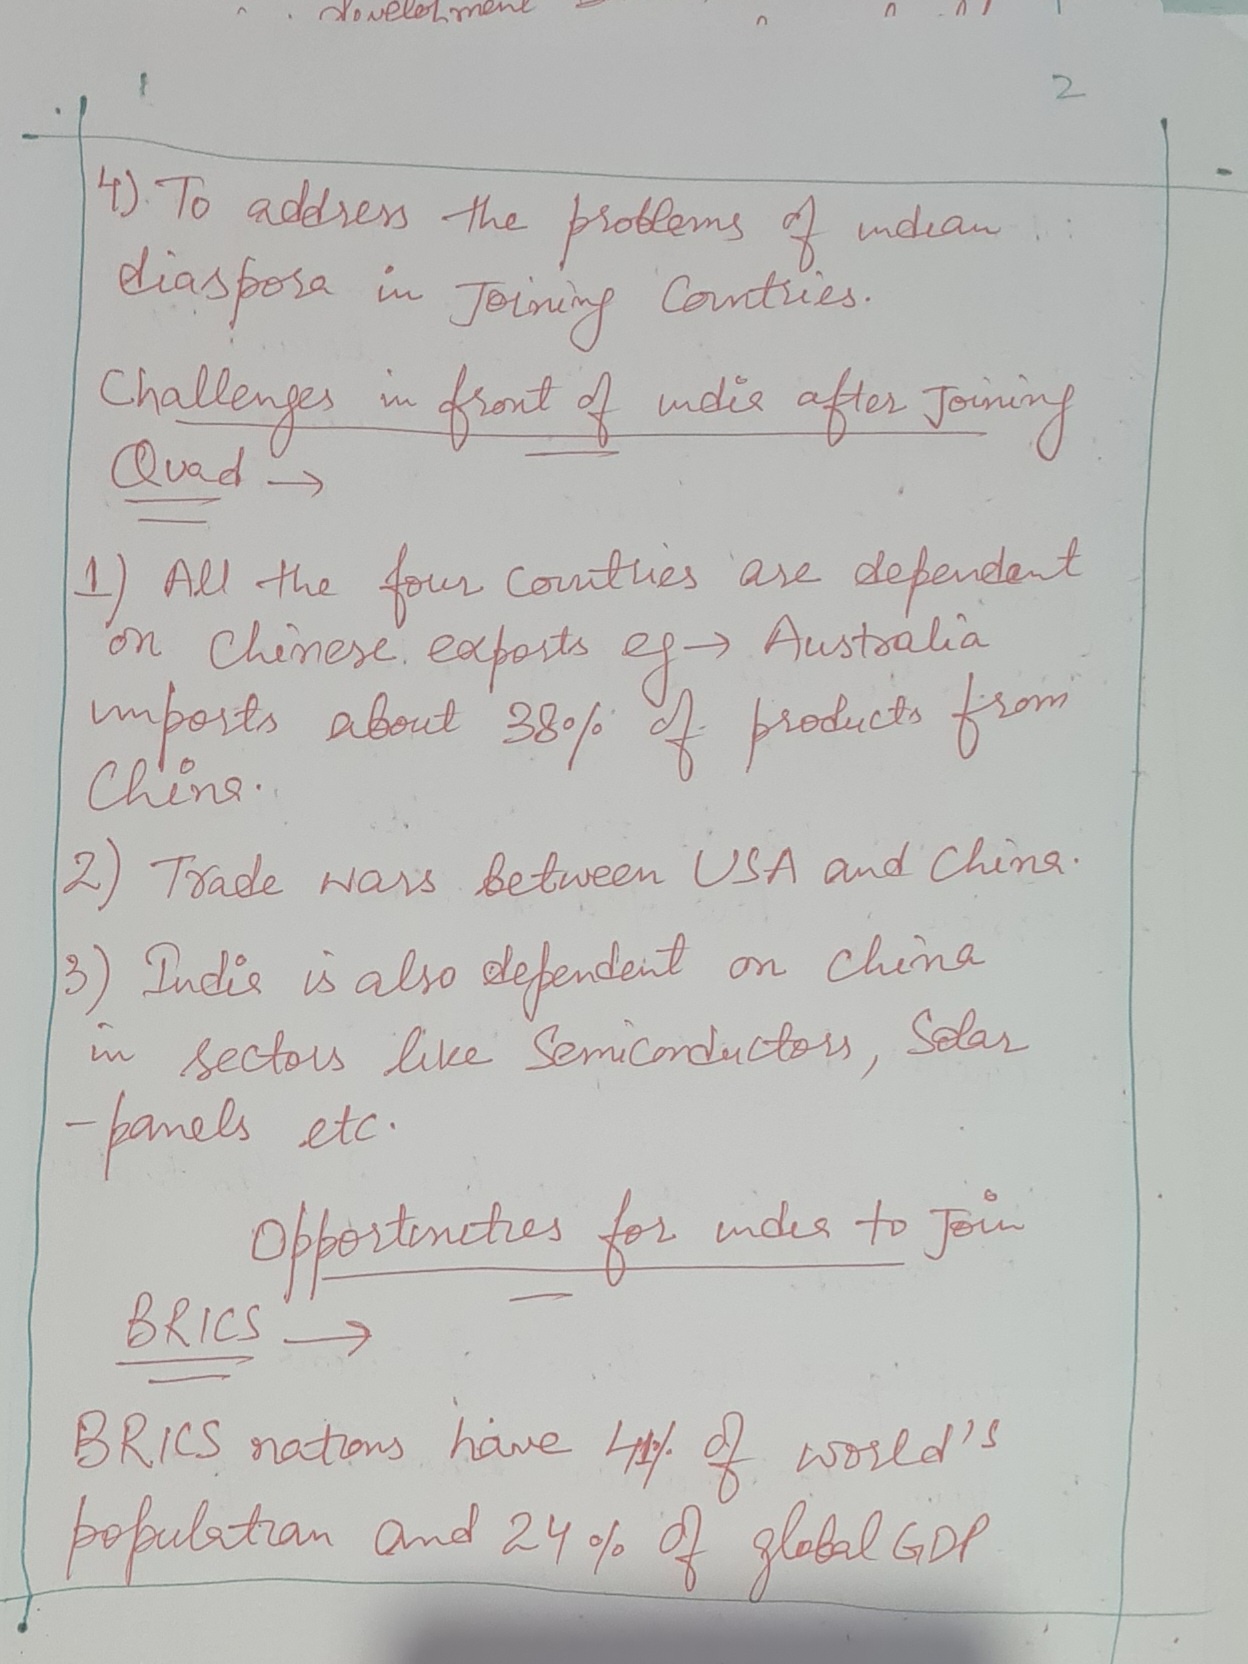 development
1 2
4). To address the problems of indian
diaspora in Joining Countries.
Challenges in front of india after Joining
Quad →
1) All the four countries are dependent
on Chinese exports eg → Australia
imports about 38% of products from
China.
2) Trade wars between USA and China.
3) India is also dependent on China
in sectors like Semiconductors, Solar
-panels etc.
Opportunities for india to Join
BRICS →
BRICS nations have 41% of world's
population and 24% of global GDP